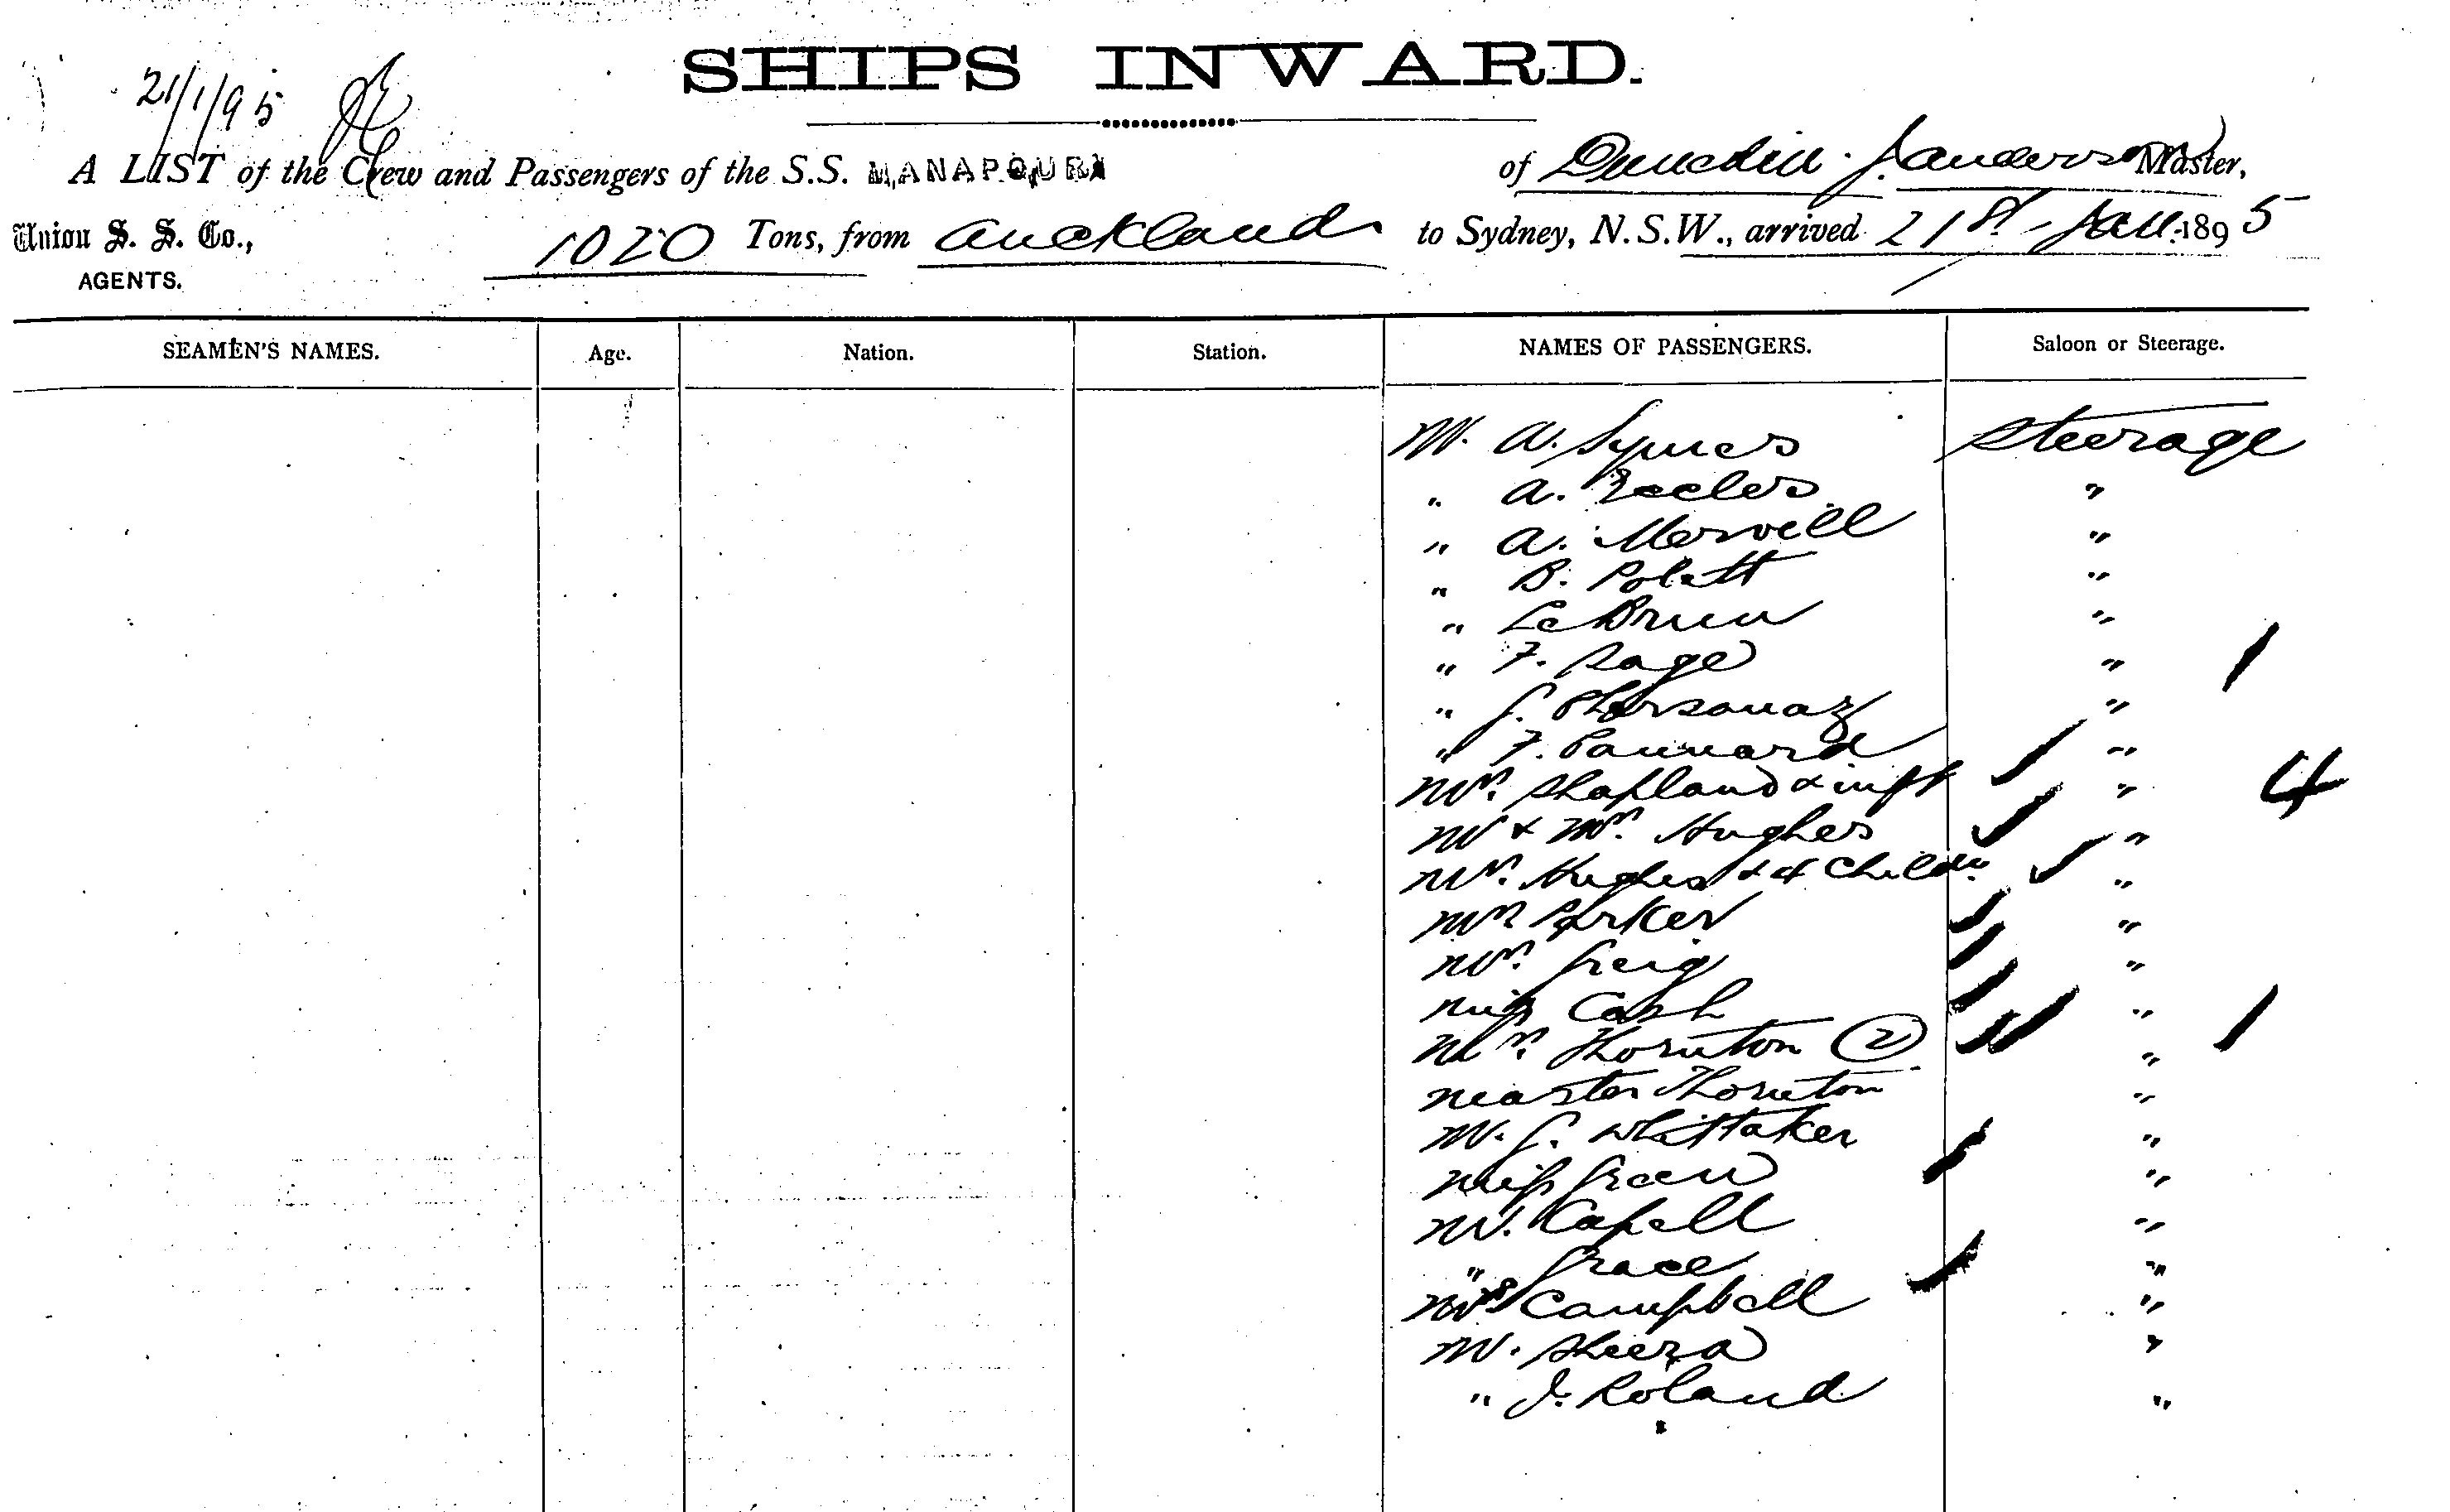 SHIPS INWARD.
21/1/95
A LIST of the Crew and Passengers of the S.S. MANAPOURI of Dunedin. J. Anderson Master,
Union S. S. Co., 1020 Tons, from Auckland to Sydney, N.S.W., arrived 21st Jan. 1895
AGENTS.
SEAMEN'S NAMES. Age. Nation. Station. NAMES OF PASSENGERS. Saloon or Steerage.
Mr. A. Symes Steerage
" A. Eccles "
" A. Morvell "
" B. Polett "
" Le Brun "
" F. Page " 1
" J. "
" F. Pannard "
Mrs. Shapland & inft " 4
Mr & Mrs. Hughes "
Mrs. Hughes & 4 Childn. "
Mrs. Parker "
Mrs. Greig "
Miss Cash "
Mrs. Thornton (2) " 1
Master Thornton "
Mr. J. Whittaker "
Miss Green "
Mr. Capell "
" Grace "
Mrs Campbell "
Mr. Sheera "
" J. Roland "